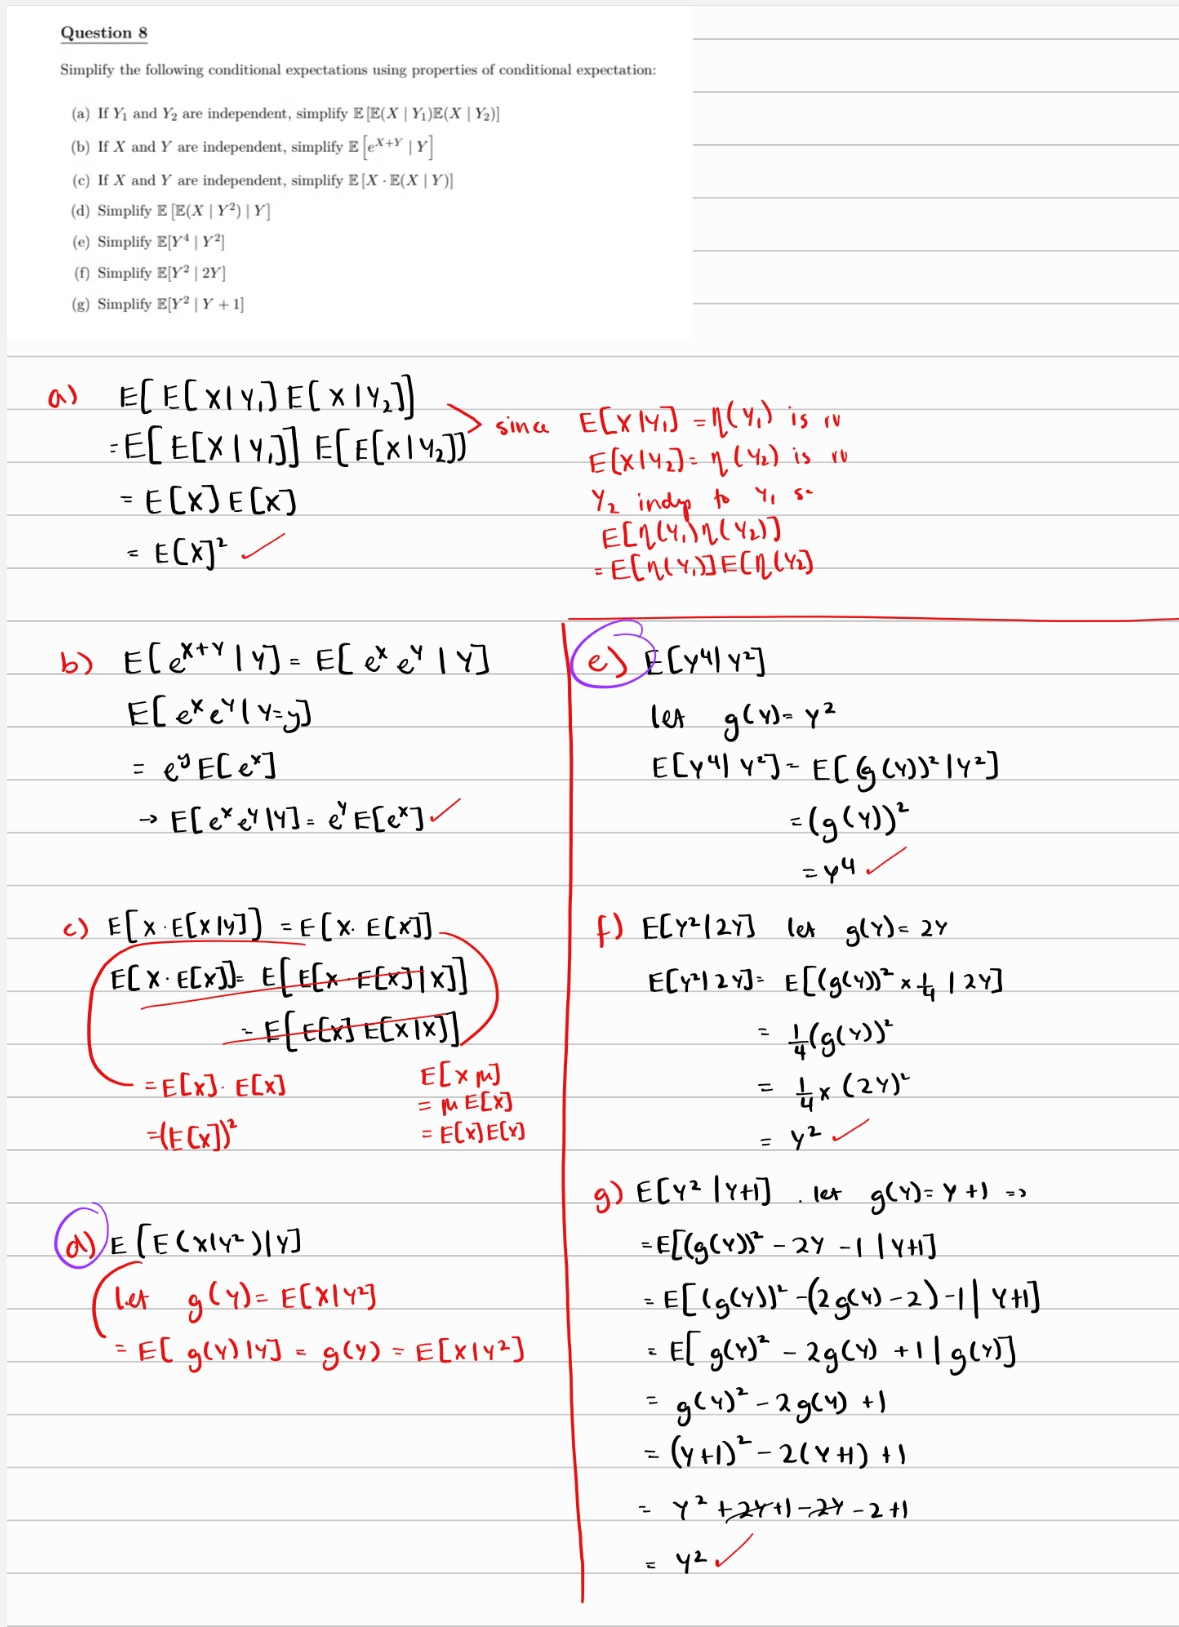 Question 8
Simplify the following conditional expectations using properties of conditional expectation:
(a) If Y₁ and Y₂ are independent, simplify 𝔼 [𝔼(X | Y₁)𝔼(X | Y₂)]
(b) If X and Y are independent, simplify 𝔼 [e^{X+Y} | Y]
(c) If X and Y are independent, simplify 𝔼 [X · 𝔼(X | Y)]
(d) Simplify 𝔼 [𝔼(X | Y²) | Y]
(e) Simplify 𝔼[Y⁴ | Y²]
(f) Simplify 𝔼[Y² | 2Y]
(g) Simplify 𝔼[Y² | Y + 1]
a) E[E[X|Y₁] E[X|Y₂]]
= E[E[X|Y₁]] E[E[X|Y₂]]
= E[X] E[X]
= E[X]² ✓
since E[X|Y₁] = η(Y₁) is rv
E[X|Y₂] = η(Y₂) is rv
Y₂ indep to Y₁ so
E[η(Y₁)η(Y₂)]
= E[η(Y₁)]E[η(Y₂)
b) E[e^{X+Y} | Y] = E[e^X e^Y | Y]
E[e^X e^Y | Y=y]
= e^y E[e^X]
→ E[e^X e^Y | Y] = e^Y E[e^X] ✓
c) E[X·E[X|Y]] = E[X·E[X]]
E[X·E[X]] = E[E[X·E[X]|X]]
= E[E[X] E[X|X]]
= E[X]·E[X]
=(E[X])²
E[X μ]
= μ E[X]
= E[X]E[X]
d) E[E(X|Y²)|Y]
let g(Y) = E[X|Y²]
= E[g(Y)|Y] = g(Y) = E[X|Y²]
e) E[Y⁴|Y²]
let g(Y) = Y²
E[Y⁴|Y²] = E[(g(Y))²|Y²]
= (g(Y))²
= Y⁴ ✓
f) E[Y²|2Y] let g(Y) = 2Y
E[Y²|2Y] = E[(g(Y))² × ¼ | 2Y]
= ¼(g(Y))²
= ¼ × (2Y)²
= Y² ✓
g) E[Y²|Y+1] . let g(Y) = Y+1 =>
= E[(g(Y))² − 2Y − 1 | Y+1]
= E[(g(Y))² − (2g(Y) − 2) − 1 | Y+1]
= E[g(Y)² − 2g(Y) + 1 | g(Y)]
= g(Y)² − 2g(Y) + 1
= (Y+1)² − 2(Y+1) + 1
= Y² + 2Y + 1 − 2Y − 2 + 1
= Y² ✓